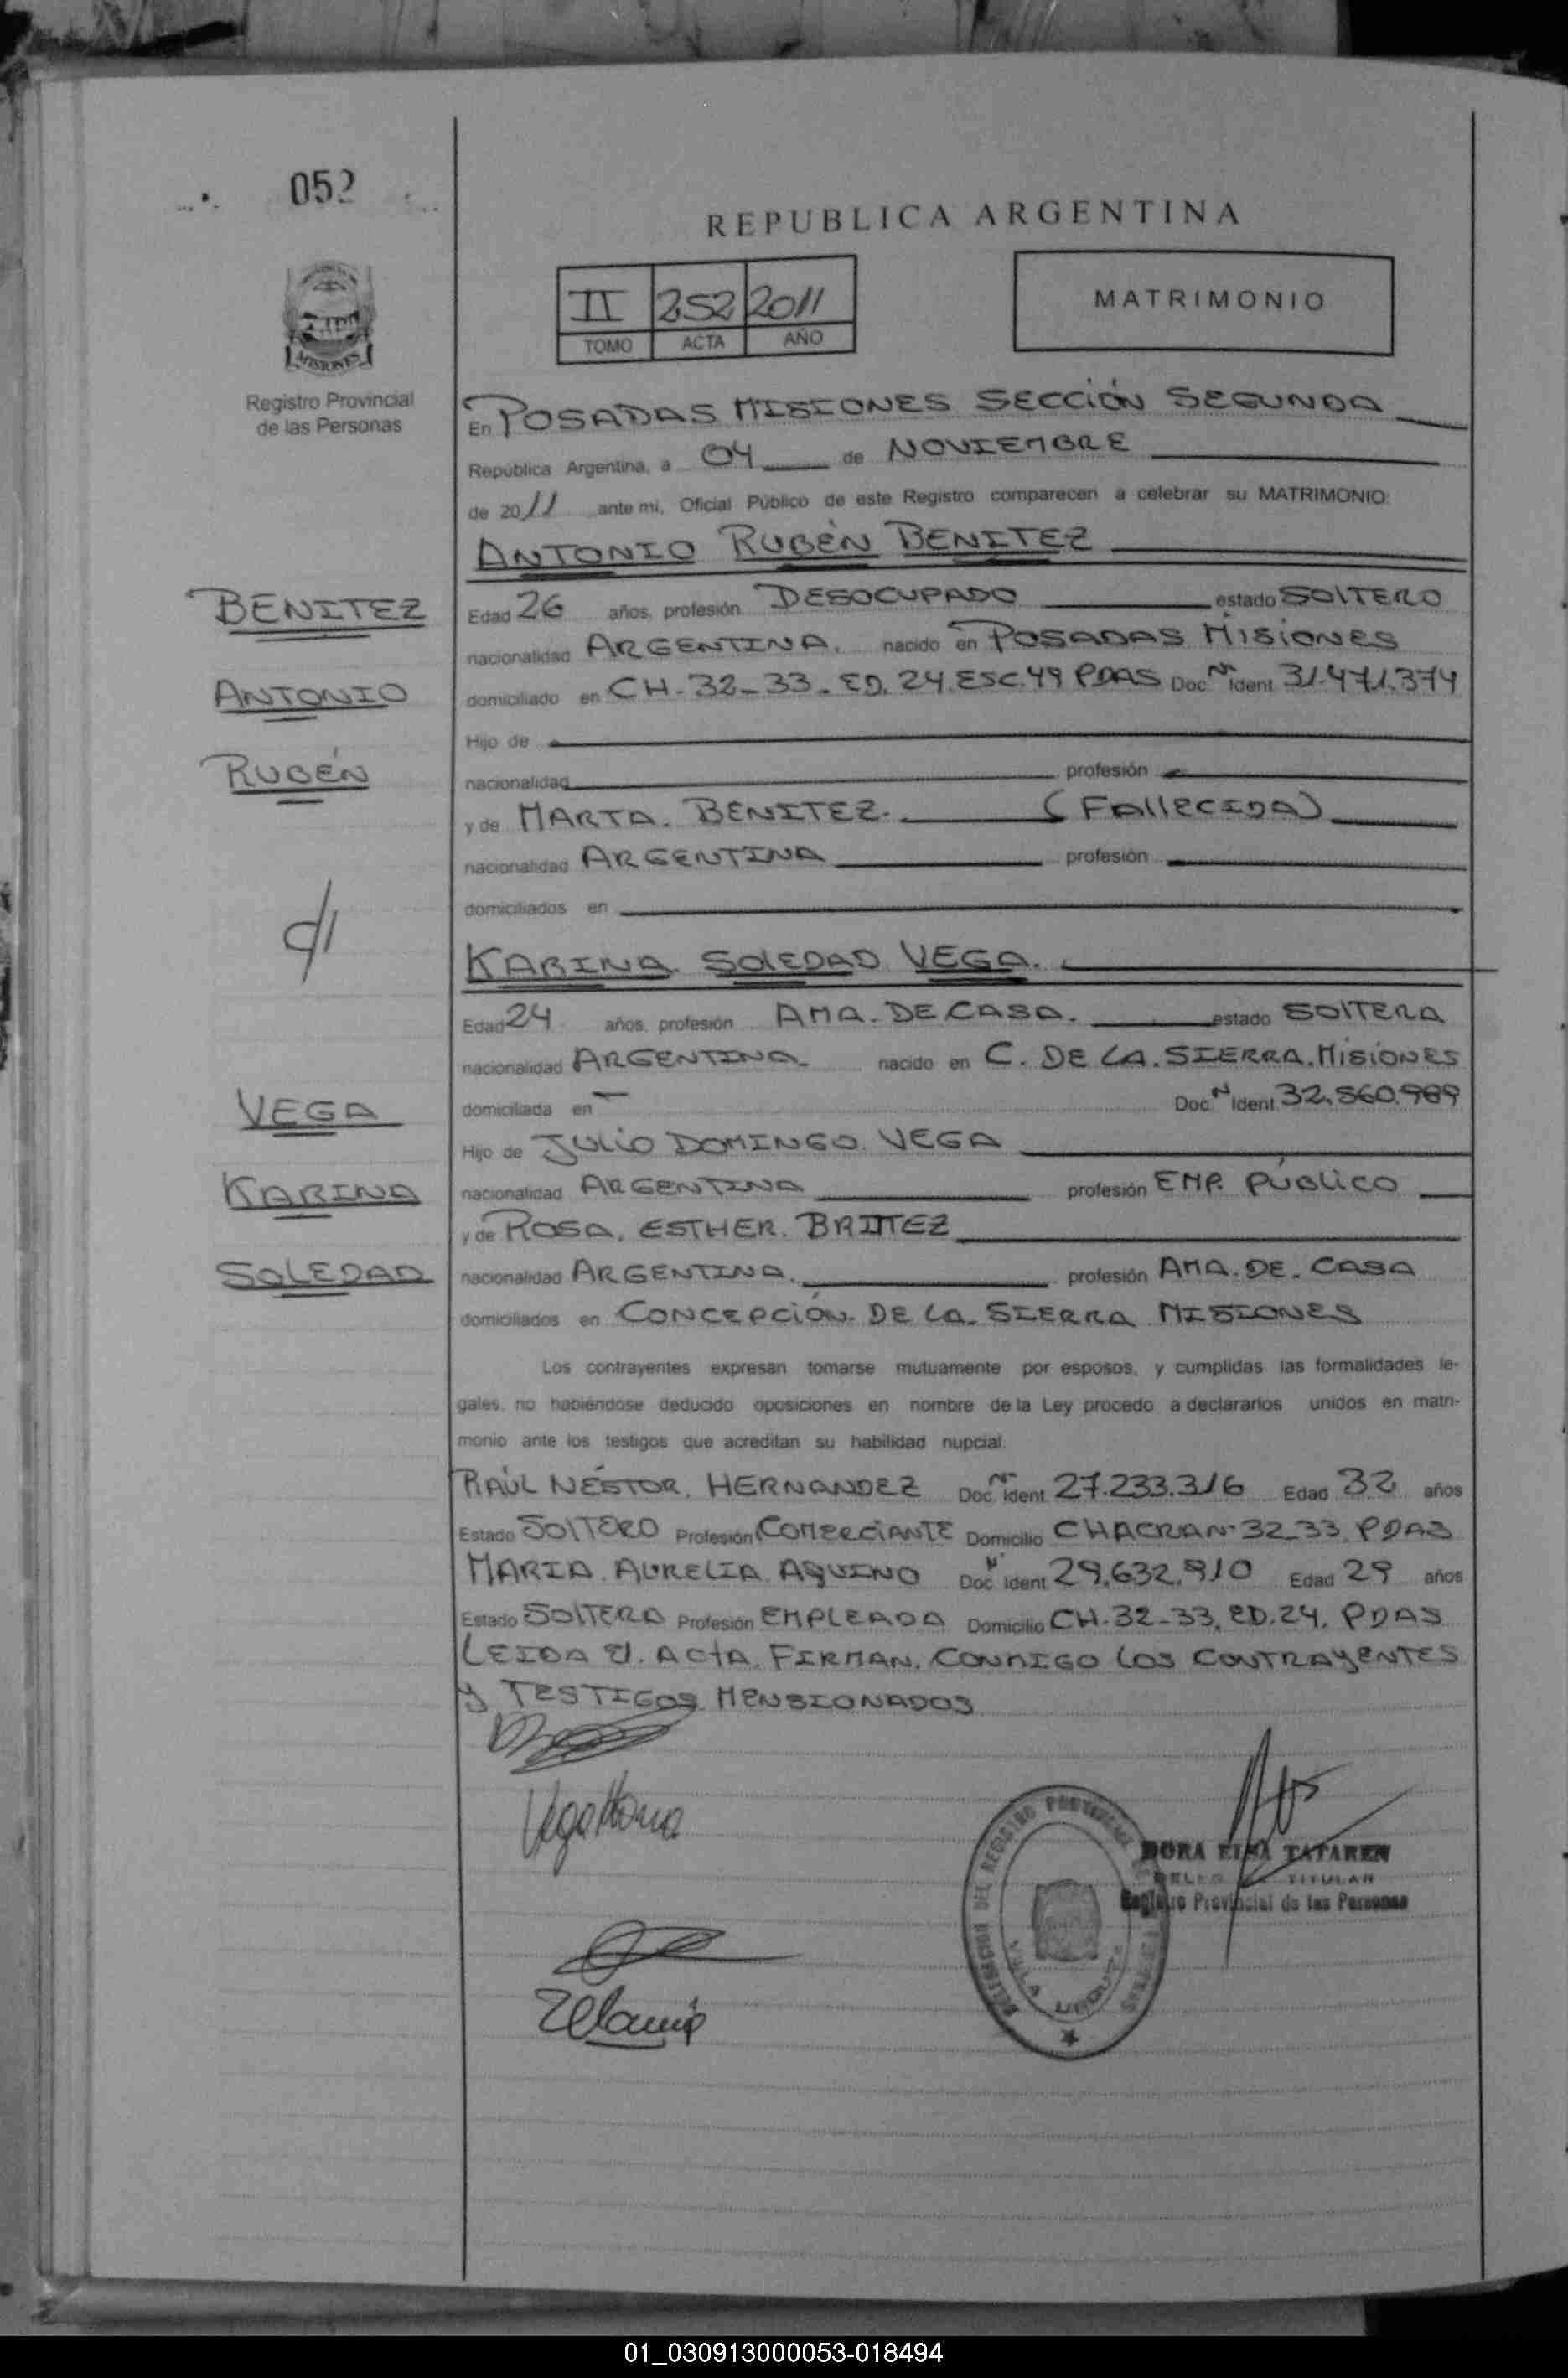 052
REPUBLICA ARGENTINA
II 252 2011
TOMO ACTA AÑO
MATRIMONIO
MISIONES
Registro Provincial
de las Personas
En POSADAS MISIONES SECCIÓN SEGUNDA
República Argentina, a 04 de NOVIEMBRE
de 2011 ante mi, Oficial Público de este Registro comparecen a celebrar su MATRIMONIO:
ANTONIO RUBÉN BENITEZ
BENITEZ
ANTONIO
RUBÉN
Edad 26 años, profesión DESOCUPADO estado SOLTERO
nacionalidad ARGENTINA. nacido en POSADAS MISIONES
domiciliado en CH-32-33. ED. 24. ESC. 49 PDAS Doc. Nº Ident 31.471.374
Hijo de
nacionalidad profesión
y de MARTA. BENITEZ. (FALLECIDA)
nacionalidad ARGENTINA profesión
domiciliados en
c/
KARINA SOLEDAD VEGA.
Edad 24 años, profesión AMA. DE CASA. estado SOLTERA
nacionalidad ARGENTINA nacido en C. DE LA. SIERRA. MISIONES
domiciliada en Doc. Nº Ident. 32.560.989
VEGA
KARINA
SOLEDAD
Hijo de JULIO DOMINGO. VEGA
nacionalidad ARGENTINA profesión EMP. PÚBLICO
y de ROSA. ESTHER. BRITTEZ
nacionalidad ARGENTINA. profesión AMA. DE. CASA
domiciliados en CONCEPCIÓN. DE LA. SIERRA MISIONES
Los contrayentes expresan tomarse mutuamente por esposos, y cumplidas las formalidades le-
gales, no habiéndose deducido oposiciones en nombre de la Ley procedo a declararlos unidos en matri-
monio ante los testigos que acreditan su habilidad nupcial:
RAÚL NÉSTOR. HERNANDEZ Doc. Nº Ident 27.233.316 Edad 32 años
Estado SOLTERO Profesión COMERCIANTE Domicilio CHACRA Nº 32-33. PDAS
MARIA. AURELIA. AQUINO Doc. Nº Ident 29.632.910 Edad 29 años
Estado SOLTERA Profesión EMPLEADA Domicilio CH-32-33. ED. 24. PDAS
LEIDA EL. ACTA. FIRMAN. CONMIGO LOS CONTRAYENTES
Y TESTIGOS MENSIONADOS
DELEGACION DEL REGISTRO PROVINCIAL
VILLA URQUIZA
TITULAR
Registro Provincial de las Personas
01_030913000053-018494